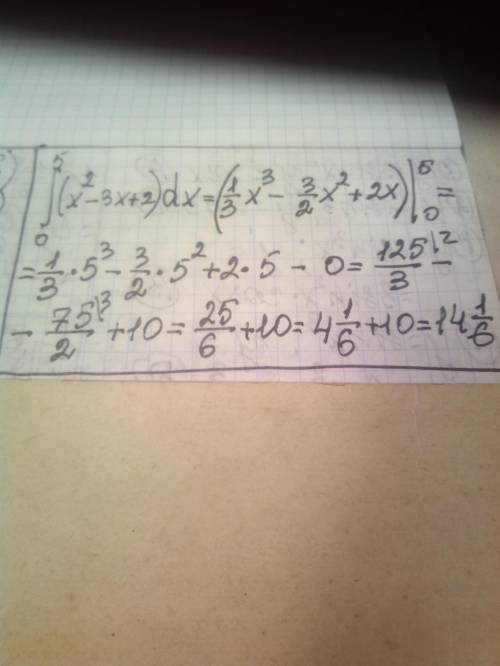 ∫₀⁵(x²-3x+2)dx=(1/3 x³ - 3/2 x²+2x)|₀⁵=
=1/3·5³-3/2·5²+2·5-0=125/3\²-
-75/2\³+10=25/6+10=4 1/6+10=14 1/6